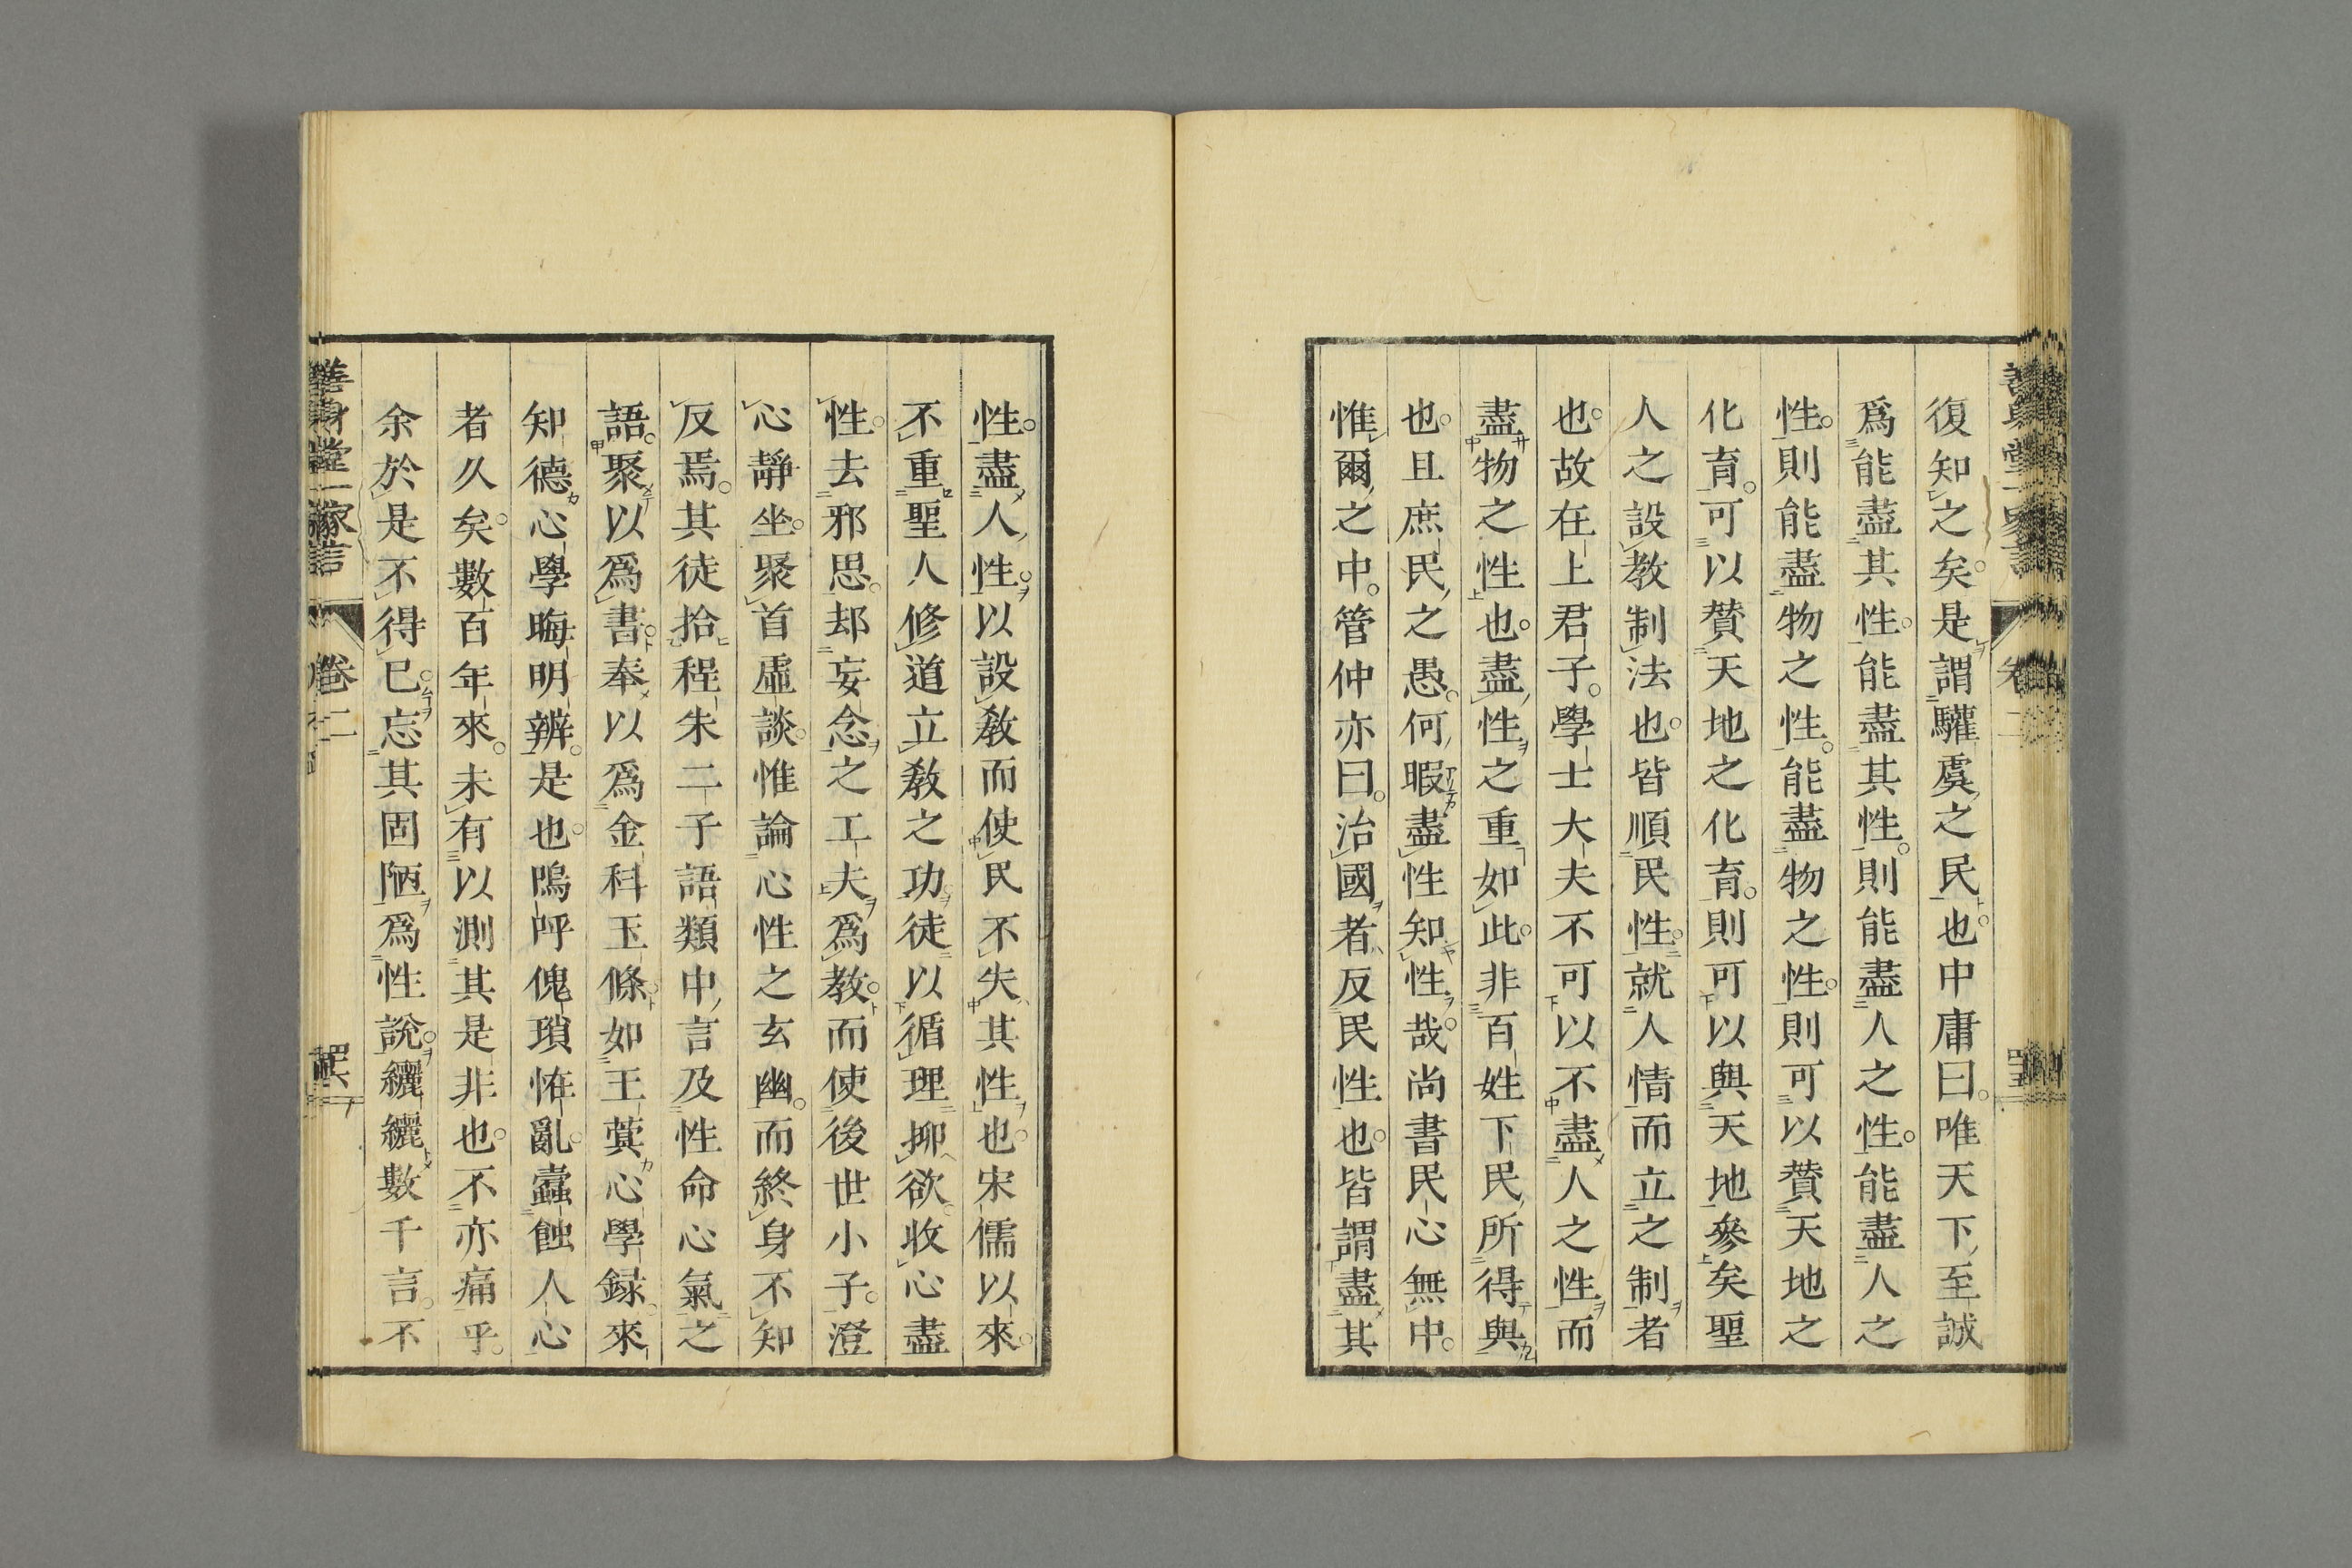 復知之矣。是謂驩虞之民也。中庸曰。唯天下至誠
爲能盡其性。能盡其性。則能盡人之性。能盡人之
性。則能盡物之性。能盡物之性。則可以賛天地之
化育。可以賛天地之化育。則可以與天地參矣聖
人之設教制法也。皆順民性。就人情而立之制者
也。故在上君子。學士大夫不可以不盡人之性而
盡物之性也。盡性之重如此。非百姓下民所得與
也。且庶民之愚。何暇盡性知性哉。尚書民心無中。
惟爾之中。管仲亦曰。治國者反民性也。皆謂盡其
性。盡人性。以設教而使民不失其性也。宋儒以來。
不重聖人修道立教之功。徒以循理抑欲。收心盡
性。去邪思。却妄念之工夫爲教。而使後世小子。澄
心靜坐。聚首虛談。惟論心性之玄幽。而終身不知
反焉。其徒拾程朱二子語類中言及性命心氣之
語。聚以爲書。奉以爲金科玉條。如王蓂心學録。來
知德心學晦明辨。是也。嗚呼傀瑣恠亂。蠧蝕人心
者久矣。數百年來。未有以測其是非也。不亦痛乎。
余於是不得已。忘其固陋爲性說。纚纚數千言。不
善身堂一家言
卷二